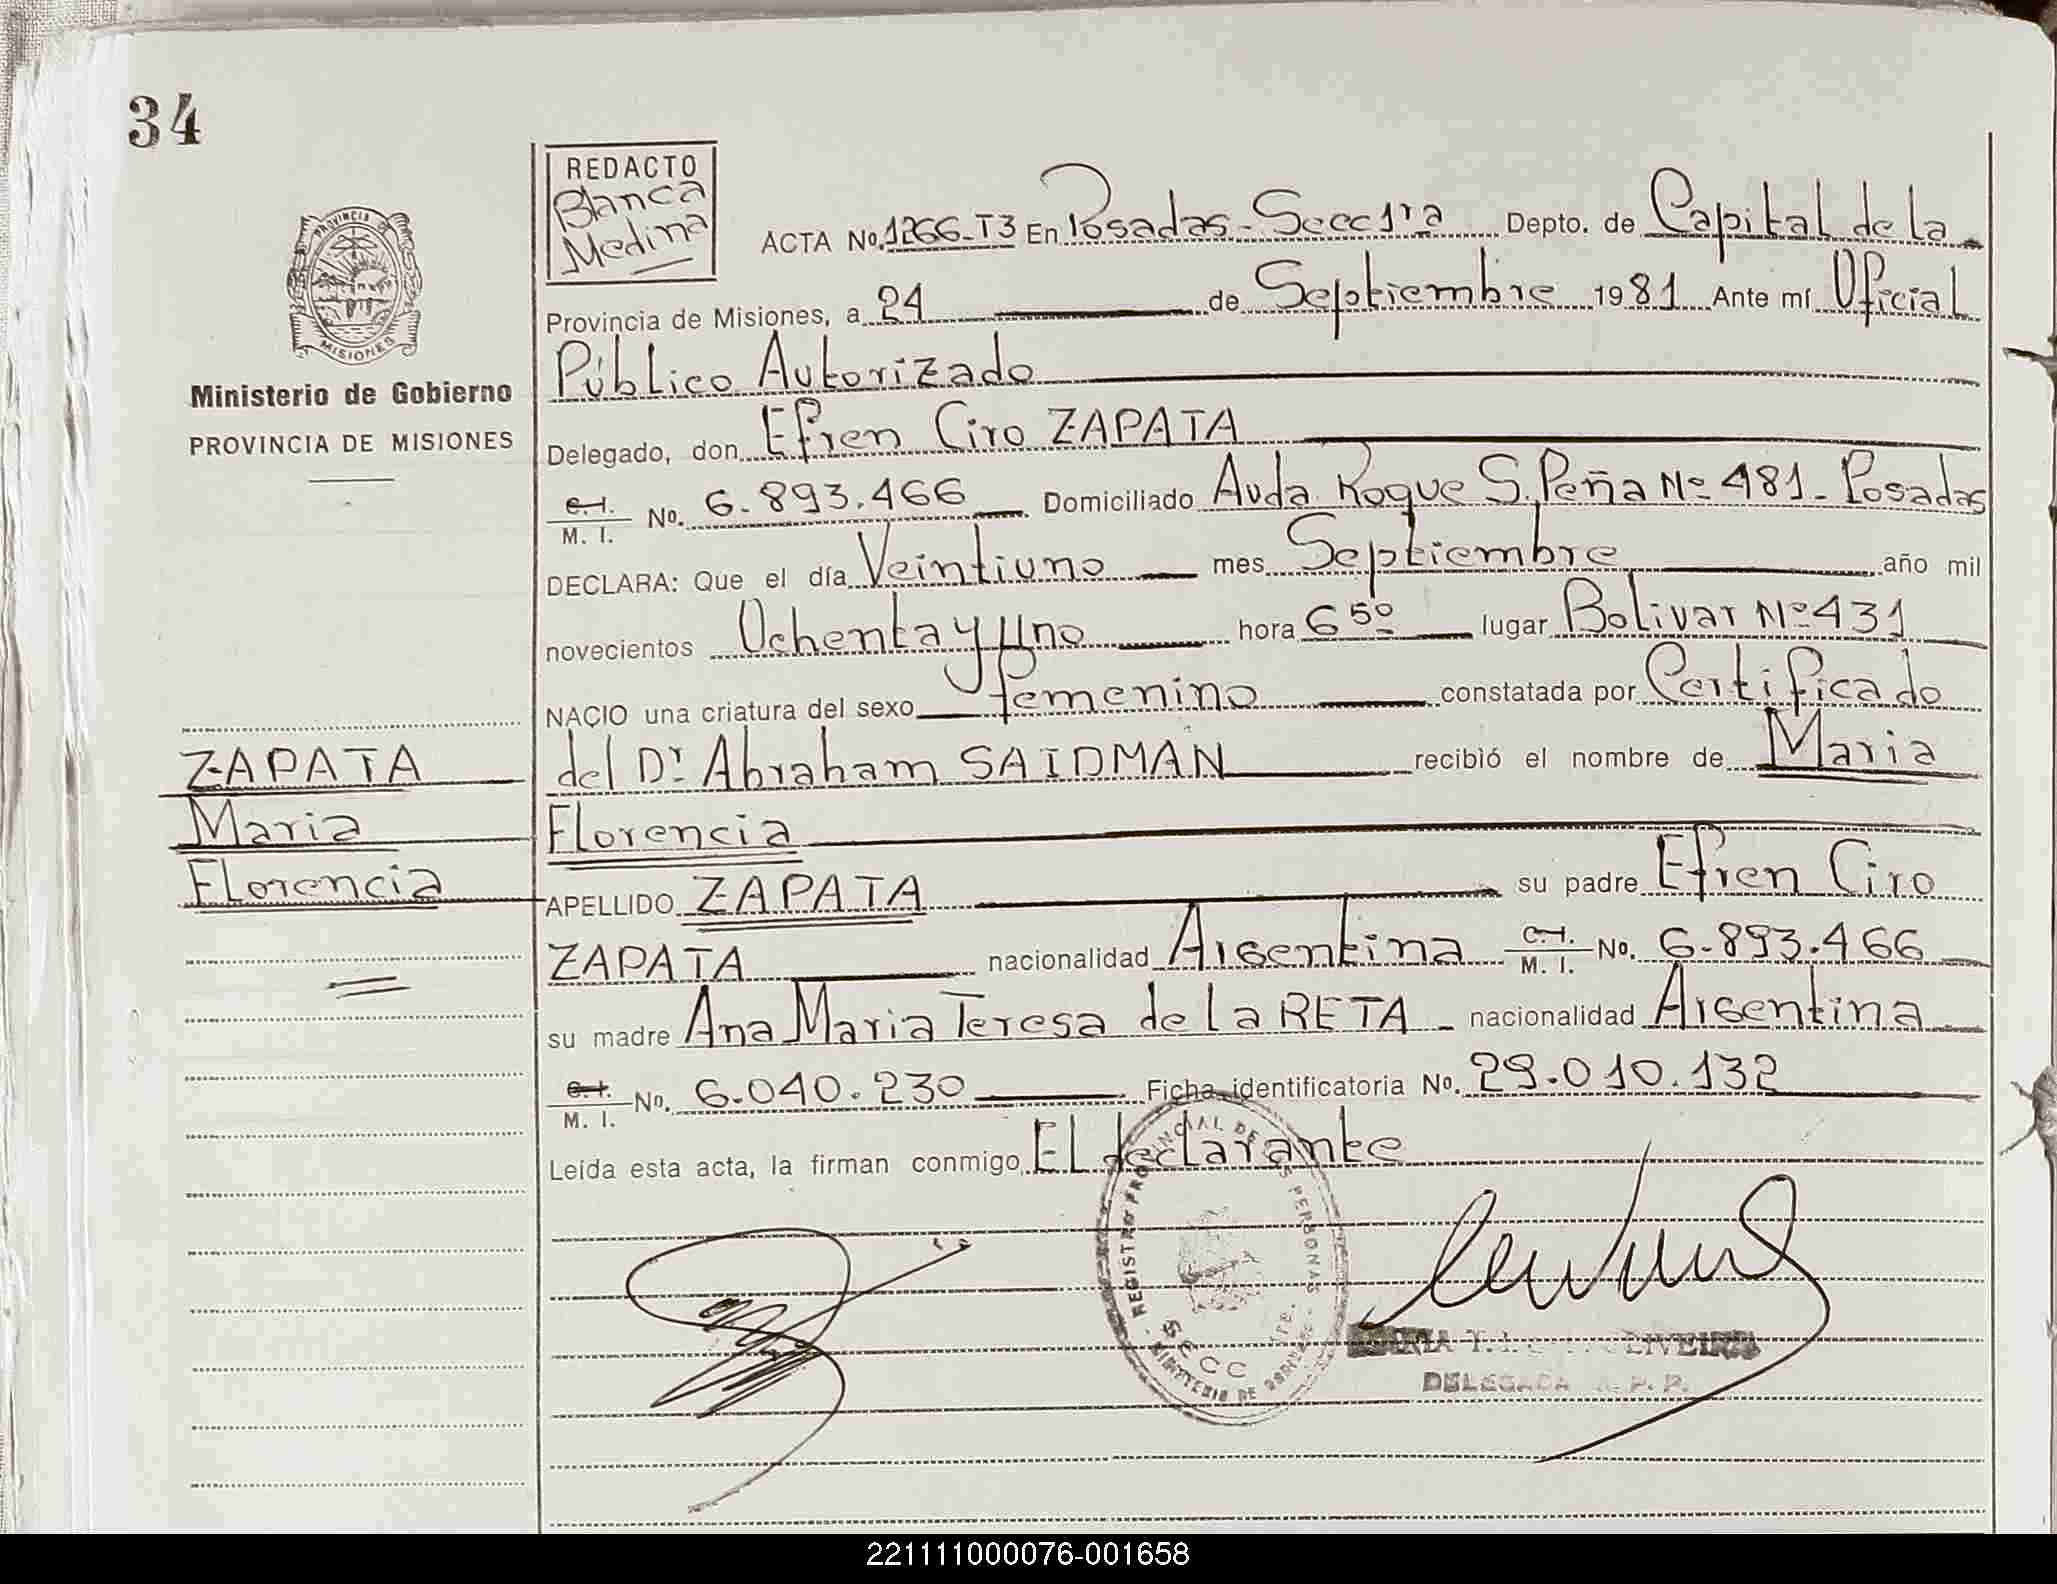 34
REDACTO
Blanca
Medina
PROVINCIA
MISIONES
Ministerio de Gobierno
PROVINCIA DE MISIONES
ACTA No. 1266-T3 En Posadas - Secc 1ra Depto. de Capital de la
Provincia de Misiones, a 24 de Septiembre 1981 Ante mí Oficial
Público Autorizado
Delegado, don Efren Ciro ZAPATA
C.I.
M. I. No. 6.893.466 Domiciliado Avda. Roque S. Peña Nº 481 - Posadas
DECLARA: Que el día Veintiuno mes Septiembre año mil
novecientos Ochenta y Uno hora 6 50 lugar Bolivar Nº 431
NACIO una criatura del sexo femenino constatada por Certificado
del Dr Abraham SAIDMAN recibió el nombre de Maria
Florencia
APELLIDO ZAPATA su padre Efren Ciro
ZAPATA nacionalidad Argentina C.I. M. I. No. 6.893.466
su madre Ana Maria Teresa de la RETA nacionalidad Argentina
C.I.
M. I. No. 6.040.230 Ficha identificatoria No. 29.010.132
Leída esta acta, la firman conmigo El declarante
ZAPATA
Maria
Florencia
REGISTRO PROVINCIAL DE LAS PERSONAS
SECC
MINISTERIO DE GOBIERNO
DELEGADA R. P. P.
221111000076-001658